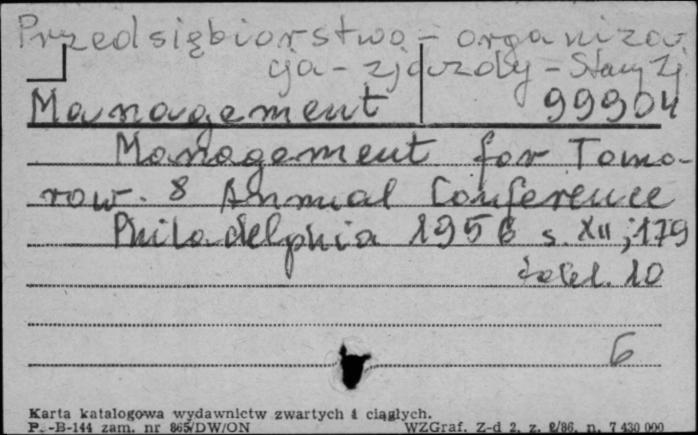 Przedsiębiorstwo - organiza
cja - zjazdy - Stany Zj.
Management 99904
Management for Tomo-
row. 8 Annual Conference
Philadelphia 1956 s. XII; 179
tabl. 10
6
Karta katalogowa wydawnictw zwartych i ciągłych.
P.-B-144 zam. nr 865/DW/ON WZGraf. Z-d 2, z. 2/86, n. 7 430 000